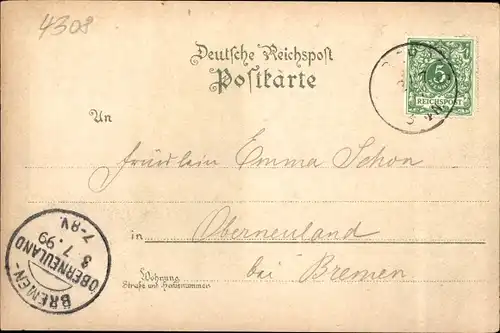 4308
Deutsche Reichspost
Postkarte
5
REICHSPOST
An
Fräulein Emma Schon
in Oberneuland
bei Bremen
Wohnung
Straße und Hausnummer
BREMEN-
OBERNEULAND
3.7.99
7-8V.